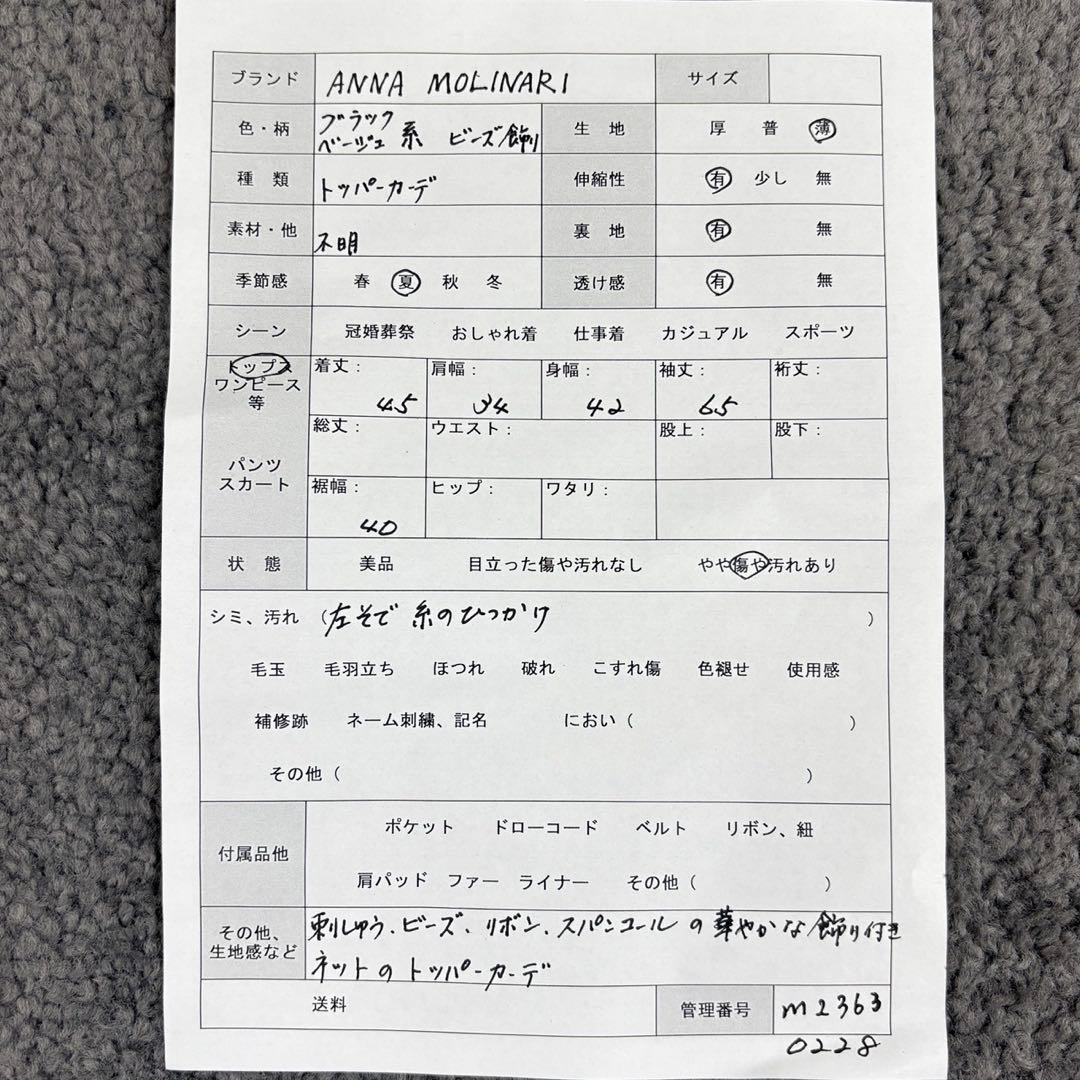 ブランド ANNA MOLINARI サイズ
色・柄 ブラック ベージュ 系 ビーズ飾り 生 地 厚 普 薄
種 類 トッパーカーデ 伸縮性 有 少し 無
素材・他 不明 裏 地 有 無
季節感 春 夏 秋 冬 透け感 有 無
シーン 冠婚葬祭 おしゃれ着 仕事着 カジュアル スポーツ
トップス 着丈： 肩幅： 身幅： 袖丈： 裄丈：
ワンピース
等 45 34 42 65
総丈： ウエスト： 股上： 股下：
パンツ
スカート 裾幅： ヒップ： ワタリ：
40
状 態 美品 目立った傷や汚れなし やや傷や汚れあり
シミ、汚れ （左そで 糸のひっかけ ）
毛玉 毛羽立ち ほつれ 破れ こすれ傷 色褪せ 使用感
補修跡 ネーム刺繍、記名 におい（ ）
その他（ ）
付属品他 ポケット ドローコード ベルト リボン、紐
肩パッド ファー ライナー その他（ ）
その他、 刺しゅう、ビーズ、リボン、スパンコールの華やかな飾り付き
生地感など ネットのトッパーカーデ
送料 管理番号 m2363
0228